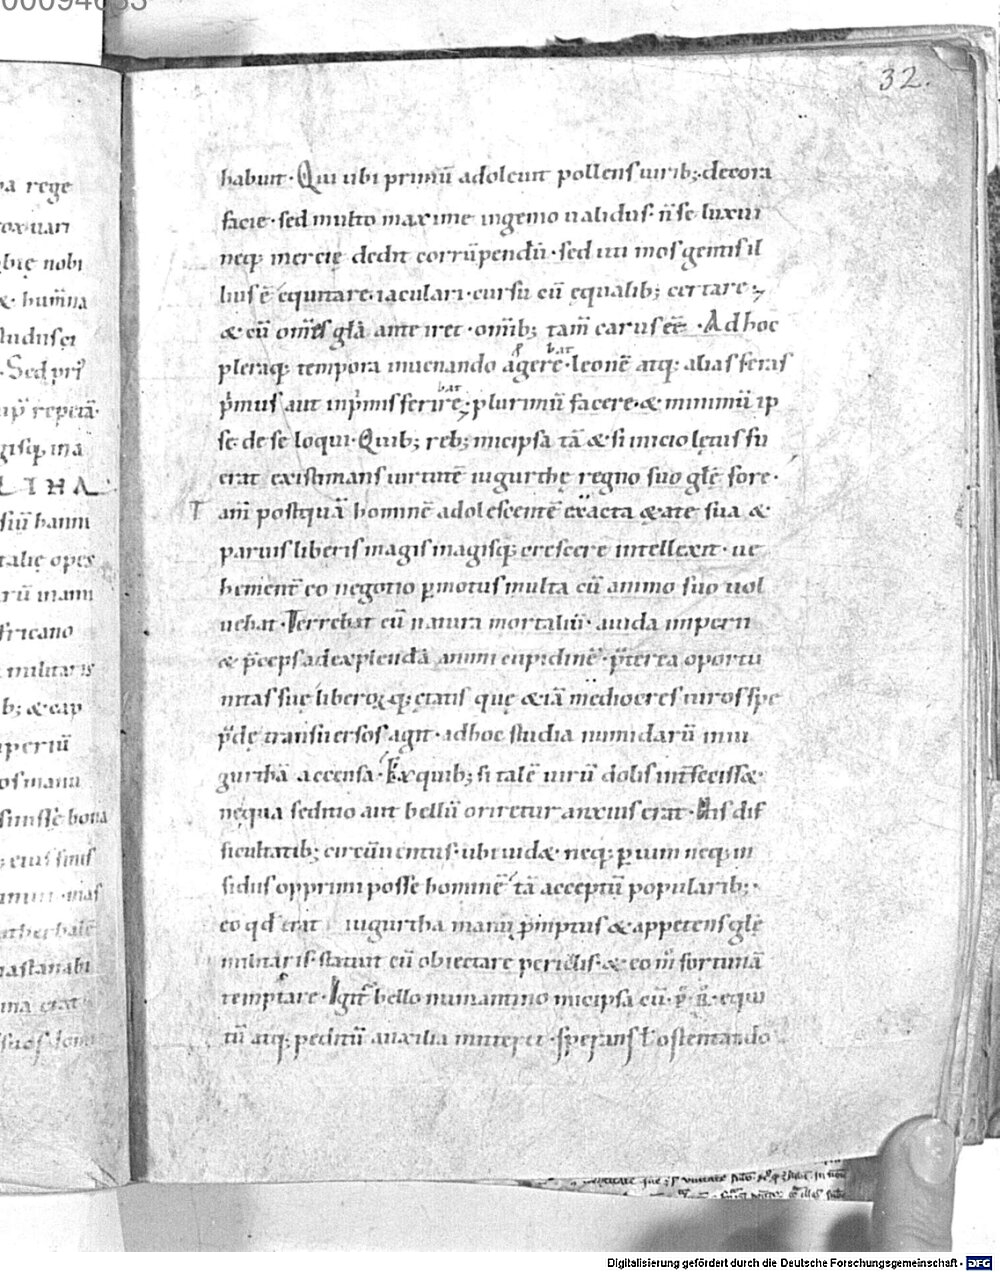 00094633
32.
habuit· Qui ubi primū adoleuit pollens uirib;· decora
facie· sed multo maxime ingenio ualidus· n̄ se luxui
neq; inercię dedit corrūpendū· sed uti mos gentis il
lius ē equitare· iaculari· cursu cū ęqualib; certare·
& cū om̄es gl̄a anteiret· om̄ib; tam̄ carus eē· Ad hoc
pleraq; tempora in uenando agere bat· leonē atq; alias feras
p̄mus aut inp̄mis ferire bat· plurimū facere· & minimū ip
se de se loqui· Quib; reb; micipsa tā & si inicio lętus fu
erat existimans uirtutē iugurthę regno suo glę̄ fore·
Tam̄ postquā hominē adolescentē exacta ętate sua &
paruis liberis magis magisq; crescere intellexit· ue
hement̄ eo negotio p̱motus multa cū animo suo uol
uebat· Terrebat eū natura mortaliū· auida imperii
& p̄ceps ad explendā animi cupidinē· p̄terea oportu
nitas suę liberoꝝq; ętatis quę & iā mediocres uiros spe
p̄dę transuersos agit· ad hoc studia numidarū in iu
gurthā accensa· Ex quib; si talē uirū dolis int̄fecisse
nequa seditio aut bellū oriretur anxius erat· His dif
ficultatib; circūuentus· ubi uid& neq; p̱ uim neq; in
sidiis opprimi posse hominē tā acceptū popularib;·
eo qd̄ erat iugurtha manu p̄mptus & appetens glę̄
militaris· statuit eū obiectare periclis· & eo m̊ fortunā
temptare· Igit̄ bello numantino micipsa cū· p̊· r̄· equi
tū atq; peditū auxilia mitteret· sperans ł ostentando
Digitalisierung gefördert durch die Deutsche Forschungsgemeinschaft - DFG